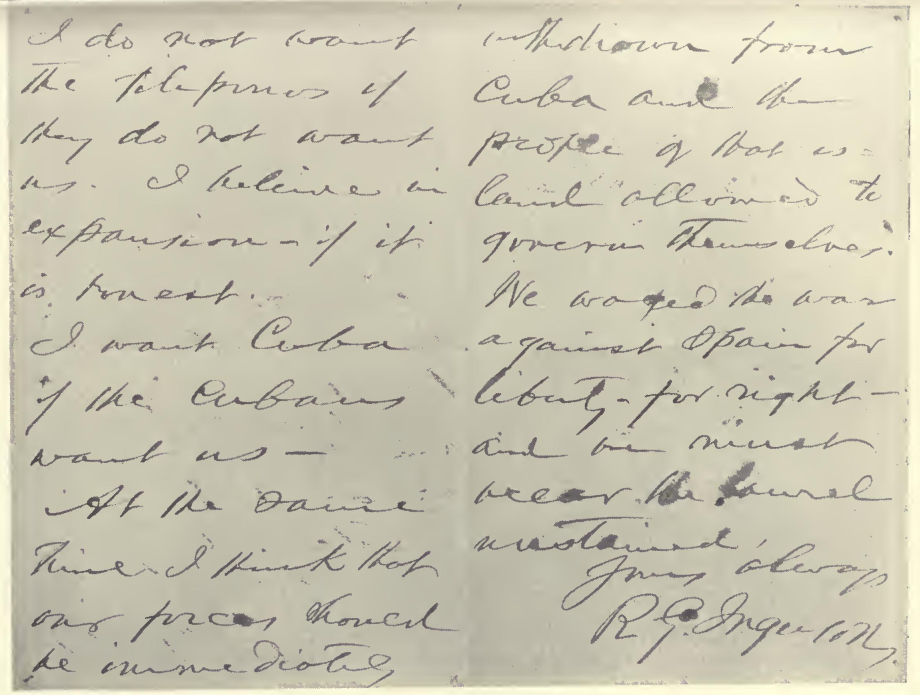 I do not want
the Filipinos if
they do not want
us. I believe in
expansion - if it
is honest.
I want Cuba
if the Cubans
want us —
At the same
time I think that
our forces should
be immediately
withdrawn from
Cuba and the
people of that is=
land allowed to
govern themselves.
We waged the war
against Spain for
liberty - for right -
and we must
wear the laurel
unstained.
Yours always
R. G. Ingersoll.